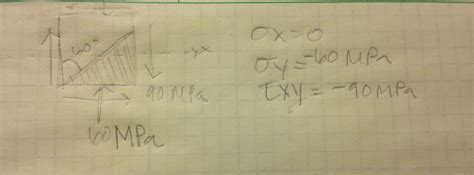 60°
90 MPa
60MPa
σx=0
σy=-60MPa
τxy=-90MPa